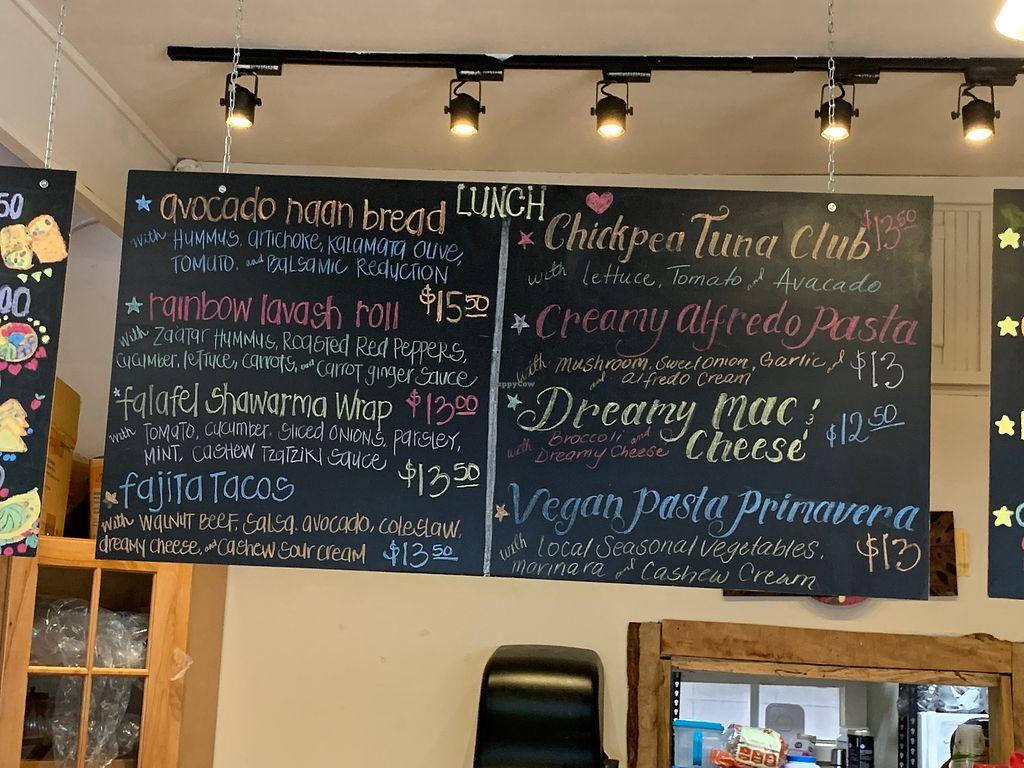 50
00
LUNCH
avocado naan bread
with Hummus, artichoke, Kalamata Olive,
Tomato, and Balsamic Reduction
$15 50
rainbow lavash roll
with Zaatar Hummus, Roasted Red Peppers,
cucumber, lettuce, carrots, and carrot ginger sauce
$13 00
falafel Shawarma Wrap
with Tomato, cucumber, sliced onions, parsley,
mint, cashew Tzatziki sauce
$13 50
fajita Tacos
with walnut beef, salsa, avocado, coleslaw,
dreamy cheese, and cashew sour cream
$13 50
Chickpea Tuna Club $13 50
with lettuce, Tomato & Avacado
Creamy Alfredo Pasta
with mushroom, Sweet onion, Garlic, &
and alfredo Cream
$13
Dreamy Mac &
Cheese
with Broccoli and
Dreamy Cheese
$12 50
Vegan Pasta Primavera
with local Seasonal Vegetables,
marinara and Cashew Cream
$13
HappyCow